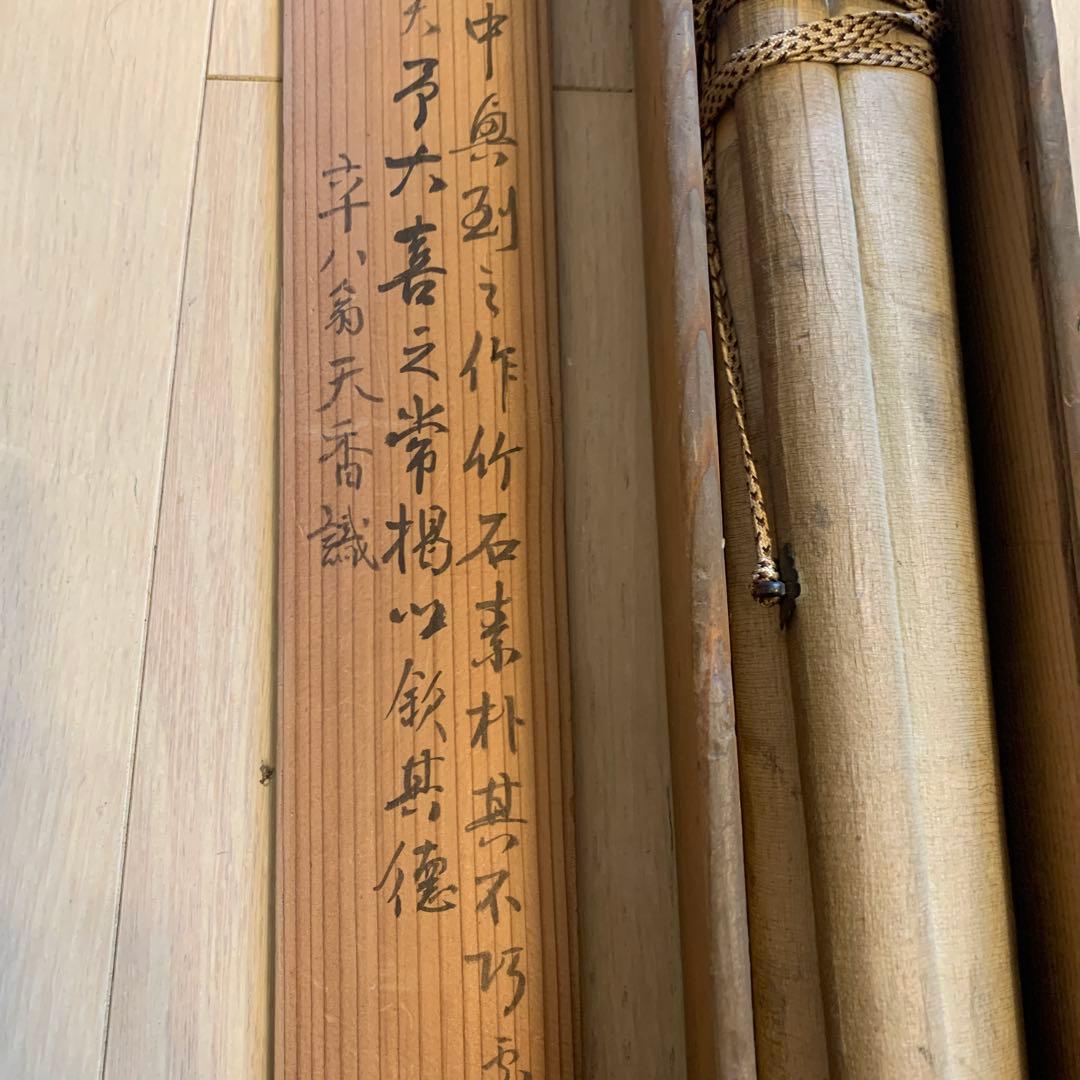 中興到之作竹石素朴其不巧處
予大喜之常掲以欽其徳
六十八翁天香識